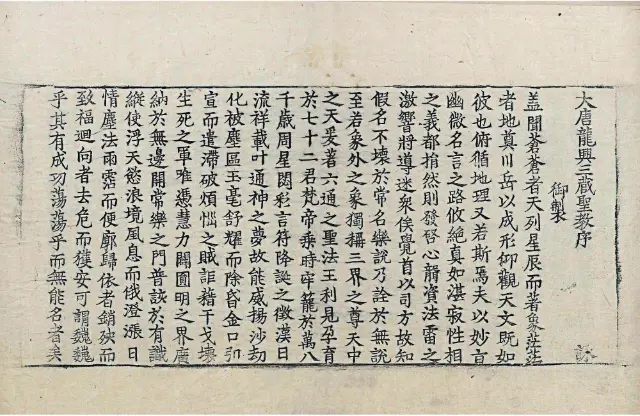 大唐龍興三藏聖教序
御製
蓋聞蒼蒼者天列星辰而著象茫茫
者地奠川岳以成形仰觀天文既如
彼也俯循地理又若斯焉夫以妙旨
幽微名言之路攸絶真如湛寂性相
之義都捐然則發啓心髓資法雷之
激響將導迷衆俟覺首以司方故知
假名不壞於常名樂說乃詮於無說
至若象外之象獨播三界之尊天中
之天爰著六通之聖法王利見孕育
於七十二君梵帝乘時牢籠於萬八
千歳周星閟彩言符降誕之徵漢日
流祥載叶通神之夢故能威揚沙劫
化被塵區玉毫舒耀而除昏金口弘
宣而遣滯破煩惱之賊詎藉干戈壞
生死之軍唯憑慧力闢圓明之界廣
納於無邊開常樂之門普該於有識
縱使浮天慾浪境風息而俄澄漲日
情塵法雨霑而便廓歸依者銷殃而
致福迴向者去危而獲安可謂巍巍
乎其有成功蕩蕩乎而無能名者矣